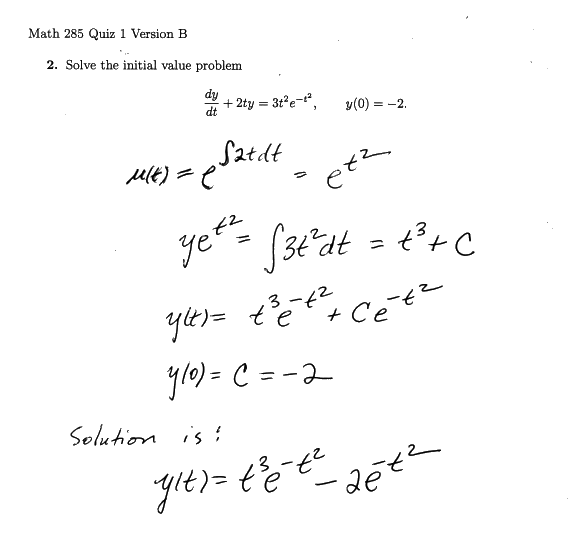 Math 285 Quiz 1 Version B
2. Solve the initial value problem
dy/dt + 2ty = 3t²e^{-t²}, y(0) = −2.
μ(t) = e^{∫2tdt} = e^{t²}
ye^{t²} = ∫3t²dt = t³ + C
y(t) = t³e^{-t²} + Ce^{-t²}
y(0) = C = −2
Solution is:
y(t) = t³e^{-t²} − 2e^{-t²}